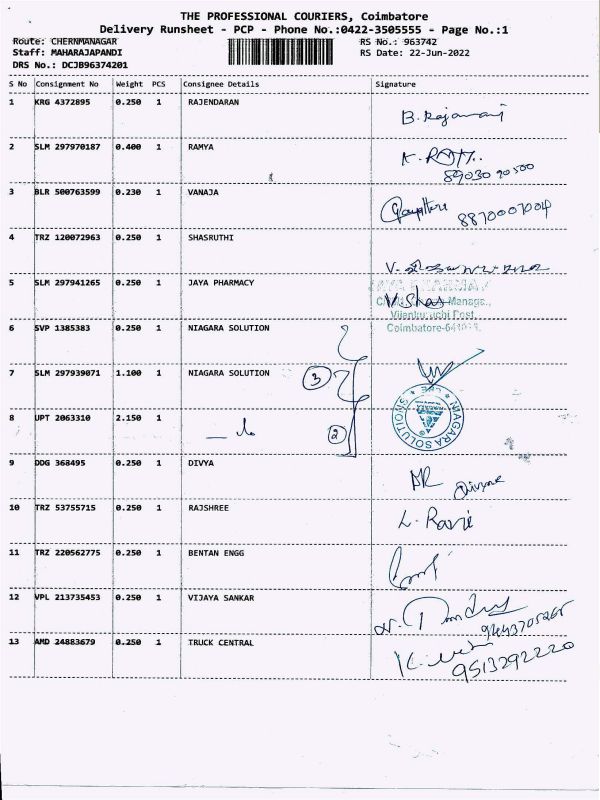 THE PROFESSIONAL COURIERS, Coimbatore
Delivery Runsheet - PCP - Phone No.:0422-3505555 - Page No.:1
Route: CHERNMANAGAR RS No.: 963742
Staff: MAHARAJAPANDI RS Date: 22-Jun-2022
DRS No.: DCJB96374201
S No Consignment No Weight PCS Consignee Details Signature
1 KRG 4372895 0.250 1 RAJENDARAN
2 SLM 297970187 0.400 1 RAMYA
89030 90500
3 BLR 500763599 0.230 1 VANAJA
8870007004
4 TRZ 120072963 0.250 1 SHASRUTHI
5 SLM 297941265 0.250 1 JAYA PHARMACY
Coimbatore-641
6 SVP 1385383 0.250 1 NIAGARA SOLUTION
7 SLM 297939071 1.100 1 NIAGARA SOLUTION 3
NIAGARA SOLUTIONS
8 UPT 2063310 2.150 1 2
9 DDG 368495 0.250 1 DIVYA
10 TRZ 53755715 0.250 1 RAJSHREE
11 TRZ 220562775 0.250 1 BENTAN ENGG
12 VPL 213735453 0.250 1 VIJAYA SANKAR
13 AMD 24883679 0.250 1 TRUCK CENTRAL
9513292220